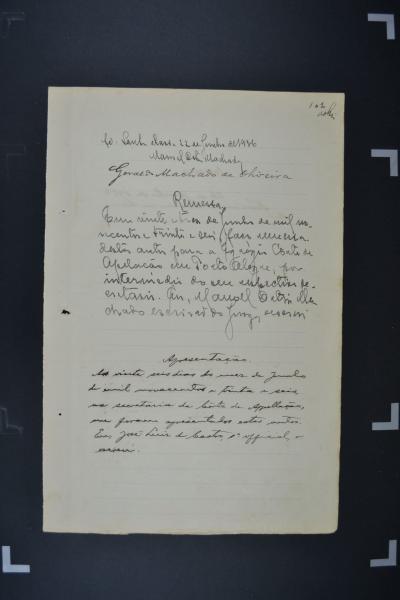 102
22 de Junho de 1936
Manoel D. Machado
Geraldo Machado de Oliveira
Remessa
Em vinte e tres de Junho de mil no-
vecentos e trinta e seis faço remessa
destes autos para a Egrégia Corte de
Apelação em Porto Alegre, por
intermedio do seu
cretario. Eu, Manoel Ma-
chado escrivão do Jury, escrevi
Apresentação.
Aos vinte seis dias do mez de Junho
de mil novecentos e trinta e seis
na secretaria da Côrte de Appellação,
me foram apresentados estes autos.
Eu, José Luiz de Castro, 1º official, o
escrevi.